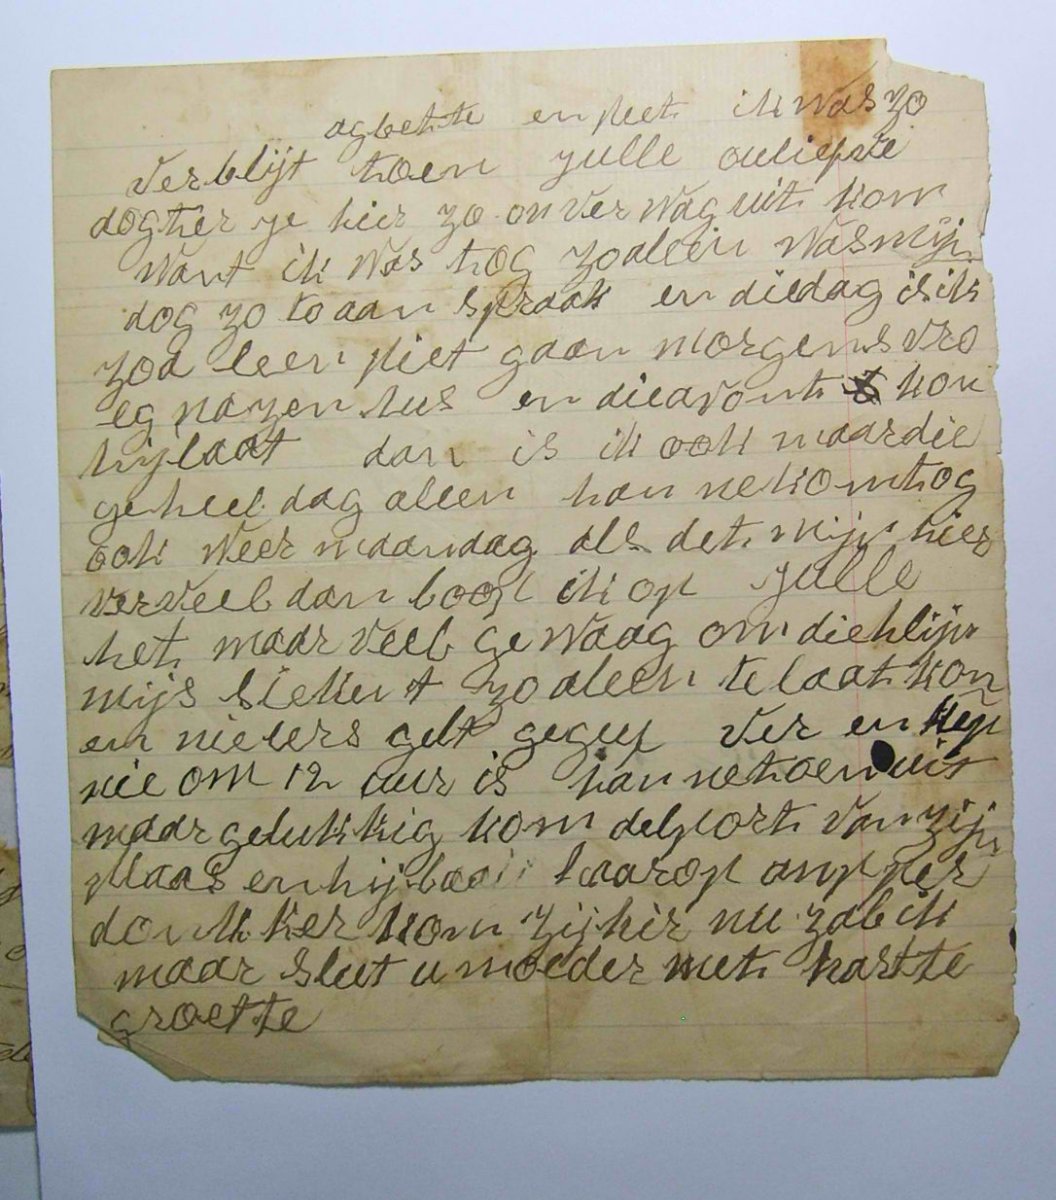 agbette en piet ik was zo
verblijt toen julle ouliefde
dogter je hier zo onverwag uit kom
want ik was tog zo aleen was mijn
dog zo to aan spraak en die dag is ik
zoa leen piet gaan morgens vro
eg na zen hus en die avont kou
hij laat dan is ik ook maar die
geheel dag aleen han ne komt tog
ook weer maandag als det mijn hier
verveel dan loop ik op julle
het maar veel gewaag om die klijn
mijs siekent zo aleen te laat kon
en nievers gelt gegeef ver en
nie om 12 uur is han ne toen uit
maar gelukkig kom delport van zijn
plaas en hij laarop amper
donkker kom zij hir nu zal ik
maar sleut u moeder met hartte
groette